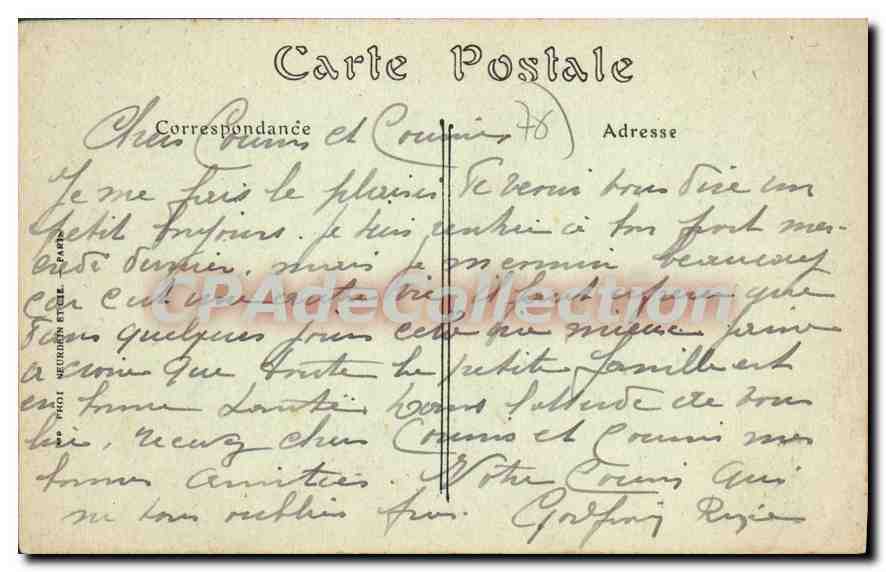 Carte Postale
Correspondance
Adresse
78
Chers Cousins et Cousines
Je me fais le plaisir de venir vous dire un
petit bonjours. je suis rentrée à bon port mer-
credi dernier, mais je m'ennui beaucoup
car c'est une autre vie, il faut espérer que
dans quelques jours cela ira mieux j'aime
a croire que toute la petite famille est
en bonne Santé, dans l'attende de vous
lire, recevez chers Cousins et Cousines mes
bonnes amitiés. Votre Cousin qui
ne vous oublies pas. Godfroy
PHOT NEURDEIN ET CIE. PARIS
CPADeCollection